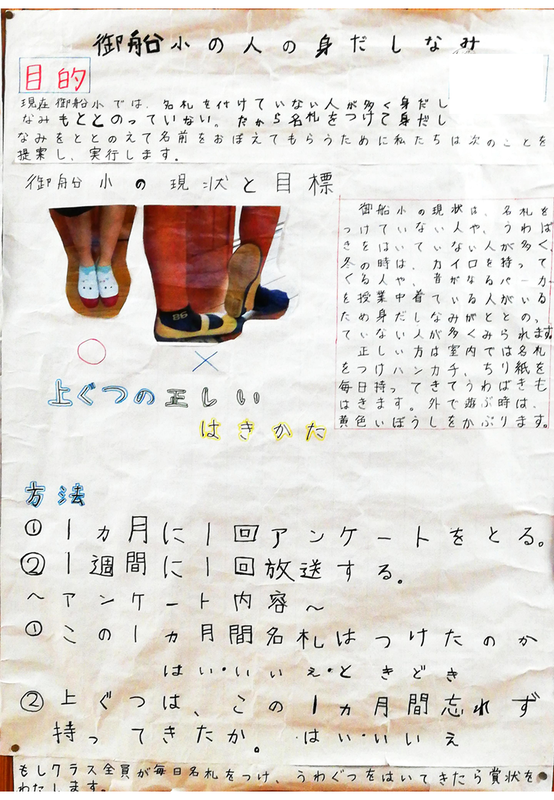 御船小の人の身だしなみ
目的
現在御船小では、名札を付けていない人が多く身だし
なみもととのっていない。だから名札をつけて身だし
なみをととのえて名前をおぼえてもらうために私たちは次のことを
提案し、実行します。
御船小の現状と目標
御船小の現状は、名札を
つけていない人や、うわば
きをはいていない人が多く、
冬の時は、カイロを持って
くる人や、音がなるパーカー
を授業中着ている人がいる
ため身だしなみがととの、
ていない人が多くみられます。
正しい方は室内では名札
をつけハンカチ、ちり紙を
毎日持ってきてうわばきも
はきます。外で遊ぶ時は、
黄色いぼうしをかぶります。
86
○
×
上ぐつの正しい
はきかた
方法
①1ヵ月に1回アンケートをとる。
②1週間に1回放送する。
～アンケート内容～
①この1ヵ月間名札はつけたのか
はい・いいえ・ときどき
②上ぐつは、この1ヵ月間忘れず
持ってきたか。・はい・いいえ
もしクラス全員が毎日名札をつけ、うわぐつをはいてきたら賞状を
わたします。